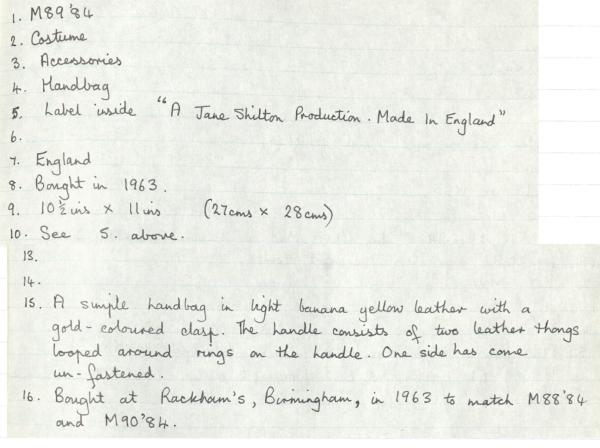 1. M89'84
2. Costume
3. Accessories
4. Handbag
5. Label inside "A Jane Shilton Production. Made In England"
6.
7. England
8. Bought in 1963.
9. 10½ins × 11ins (27cms × 28cms)
10. See 5. above.
13.
14.
15. A simple handbag in light banana yellow leather with a
gold-coloured clasp. The handle consists of two leather thongs
looped around rings on the handle. One side has come
un-fastened.
16. Bought at Rackham's, Birmingham, in 1963 to match M88'84
and M90'84.